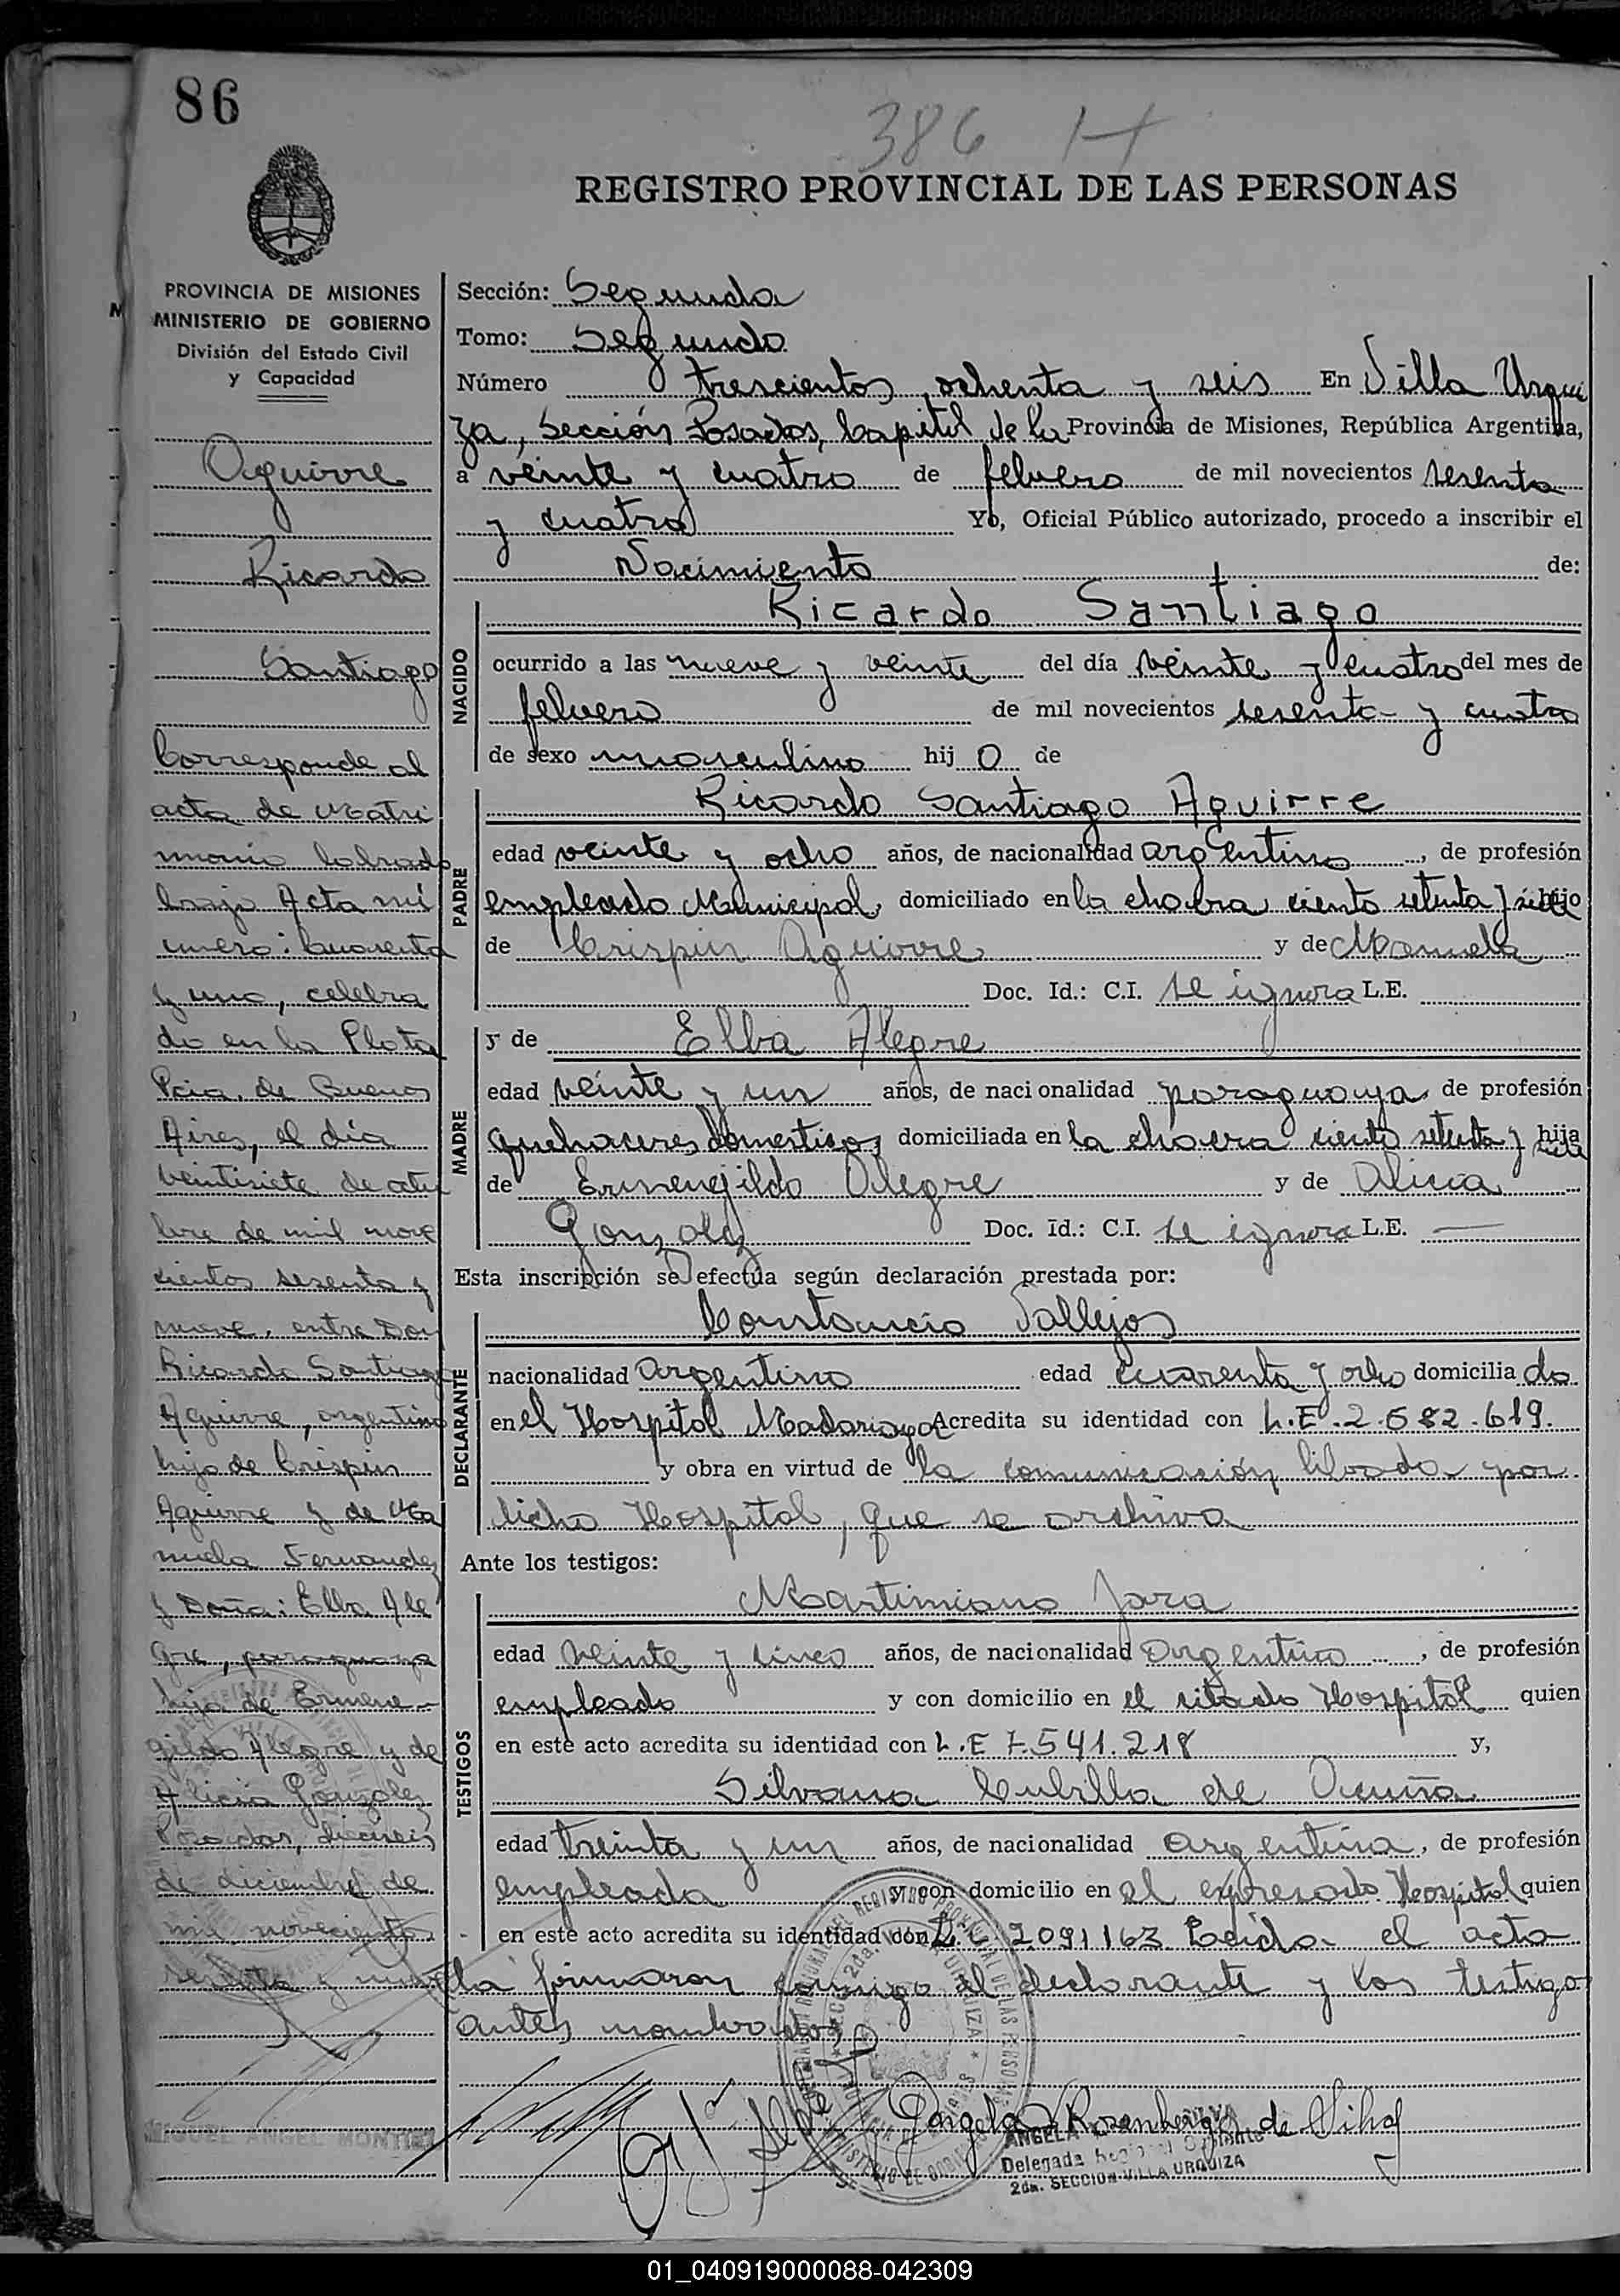 86
386 H
REGISTRO PROVINCIAL DE LAS PERSONAS
PROVINCIA DE MISIONES
MINISTERIO DE GOBIERNO
División del Estado Civil
y Capacidad
Aguirre
Ricardo
Santiago
Corresponde al
acta de Matri
monio labrado
bajo Acta nú
mero: Cuarenta
y uno, celebra
do en la Plata
Pcia. de Buenos
Aires, el día
veintisiete de
bre de mil nove
cientos sesenta y
nueve, entre Don
Ricardo Santiago
Aguirre, argentino
hijo de Crispin
Aguirre y de Ma
nuela Fernandez
y Doña: Elba Ale
gre, paraguaya
hija de Ermene-
gildo Alegre y de
Alicia Gonzalez
Posadas, dieciseis
de diciembre de
mil novecientos
sesenta y nueve
MIGUEL ANGEL MONTIEL
Sección: Segunda
Tomo: Segundo
Número trescientos ochenta y seis En Villa Urqui
za, Sección Posadas, Capital de la Provincia de Misiones, República Argentina,
a veinte y cuatro de febrero de mil novecientos sesenta
y cuatro Yo, Oficial Público autorizado, procedo a inscribir el
Nacimiento de:
NACIDO
Ricardo Santiago
ocurrido a las nueve y veinte del día veinte y cuatro del mes de
febrero de mil novecientos sesenta y cuatro
de sexo masculino hij o de
PADRE
Ricardo Santiago Aguirre
edad veinte y ocho años, de nacionalidad argentino, de profesión
empleado Municipal, domiciliado en la chacra ciento setenta y siete hijo
de Crispin Aguirre y de Manuela
Doc. Id.: C.I. se ignora L.E.
MADRE
y de Elba Alegre
edad veinte y un años, de nacionalidad paraguaya, de profesión
quehaceres domesticos, domiciliada en la chacra ciento setenta y siete hija
de Ermenejildo Alegre y de Alicia
Gonzalez Doc. Id.: C.I. se ignora L.E. —
Esta inscripción se efectúa según declaración prestada por:
DECLARANTE
Constancio Vallejos
nacionalidad argentino edad cuarenta y ocho domicilia do
en el Hospital Madariaga Acredita su identidad con L.E.2.582.619.
y obra en virtud de la comunicación librada por
dicho Hospital, que se archiva
Ante los testigos:
TESTIGOS
Martimiano Jara
edad veinte y cinco años, de nacionalidad argentino, de profesión
empleado y con domicilio en el citado Hospital quien
en este acto acredita su identidad con L.E 7.541.218 y,
Silvana Cubilla de Acuña
edad treinta y un años, de nacionalidad argentina, de profesión
empleada y con domicilio en el expresado Hospital quien
en este acto acredita su identidad con L.C 2.091163 Leida el acta
la firmaron conmigo el declarante y los testigos
antes nombrados
Angela Rosenberg de Silva
Delegada
2da. SECCION VILLA URQUIZA
01_040919000088-042309